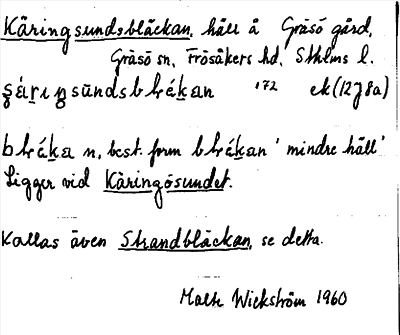 Käringsundsbläckan, häll å Gräsö gård,
Gräsö sn, Frösåkers hd, Sthlms l.
172 ek (12J8a)
n, best. form ' mindre häll'
Ligger vid Käringösundet.
Kallas även Strandbläckan, se detta.
Malte Wickström 1960